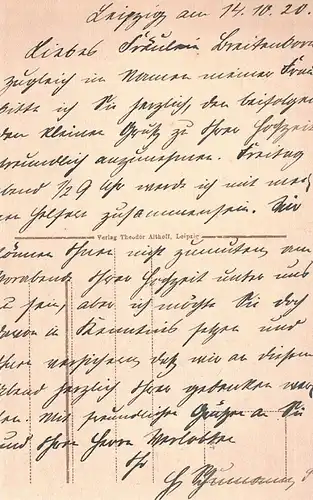 Leipzig am 14.10.20.
Liebes Fräulein Breitenborn
zugleich im Namen meiner Frau
bitte ich Sie herzlich, den beifolgen
den kleinen Gruß zu Ihrer Hochzeit
freundlich anzunehmen. Freitag
abend ½9 Uhr werde ich mit mei
en Helfern zusammensein. Wir
Verlag Theodor Althoff, Leipzig
können Ihnen nicht zumuten, am
Vorabend Ihrer Hochzeit unter uns
zu sein, aber ich möchte Sie doch
davon in Kenntnis setzen und
Ihnen versichern, daß wir an diesem
Abend herzlich Ihrer gedenken wer
den. Mit freundlichen Grüßen an Sie
und Ihren Herrn Verlobten
Ihr
Schumann